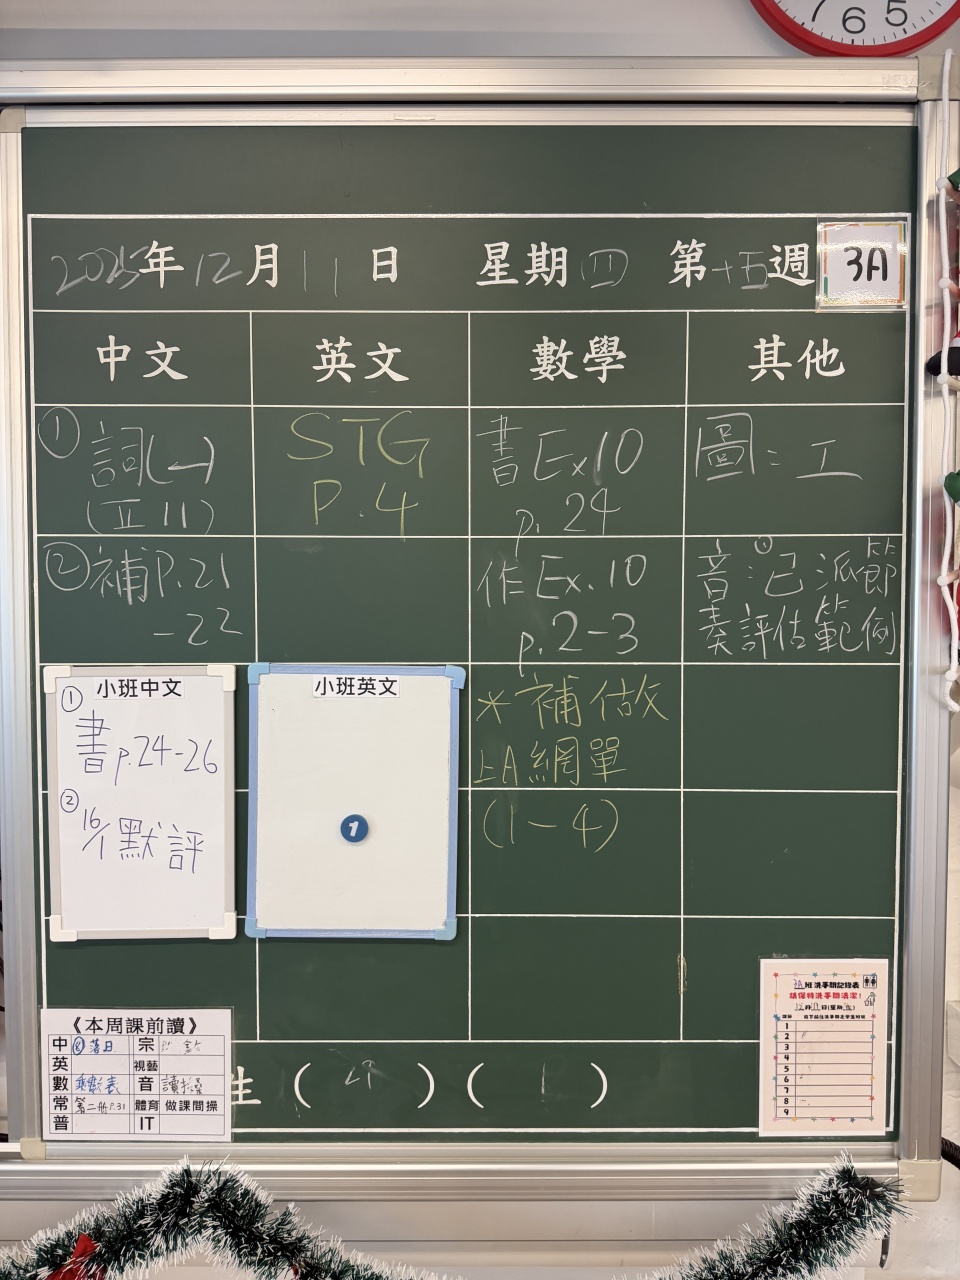 7 6 5
2025年12月11日 星期四 第十五週 3A
中文 英文 數學 其他
① 詞(一)
(五11)
STG
P.4
書Ex10
p.24
圖：工
② 補P.21
-22
作Ex.10
p.2-3
音：①已派節
奏評估範例
小班中文
①
書p.24-26
②
16/1默評
小班英文
1
*補做
上A網單
(1-4)
《本周課前讀》
中 ⑧落日 宗
英 視藝
數 乘數表 音
常 第二冊P.31 體育 做課間操
普 IT
生( )( 1 )
3A班洗手間記錄表
請保持洗手間清潔！
1
2
3
4
5
6
7
8
9